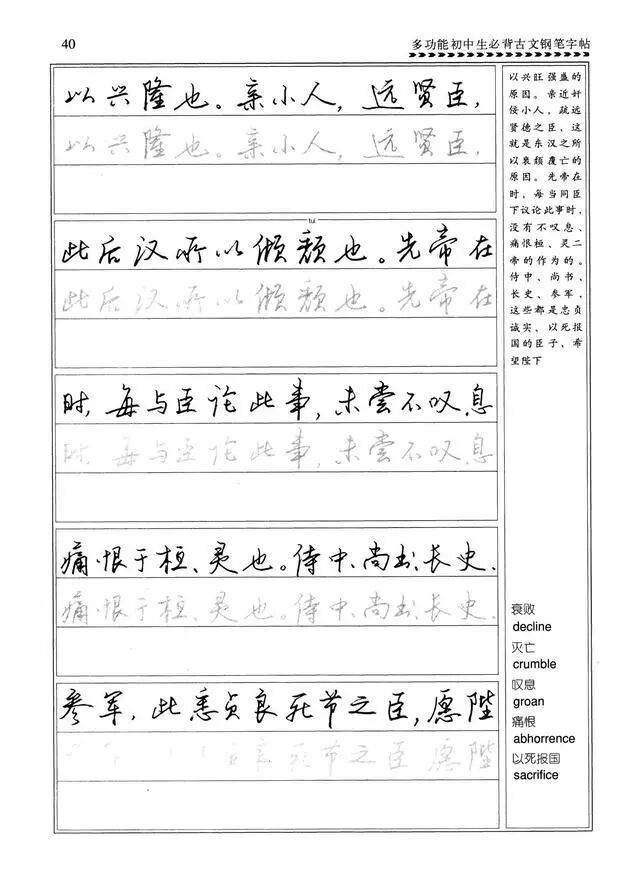 40
多功能初中生必背古文钢笔字帖
以兴隆也。亲小人，远贤臣，
以兴隆也。亲小人，远贤臣，
tui
此后汉所以倾颓也。先帝在
此后汉所以倾颓也。先帝在
时，每与臣论此事，未尝不叹息
时，每与臣论此事，未尝不叹息
痛恨于桓、灵也。侍中、尚书、长史、
痛恨于桓、灵也。侍中、尚书、长史、
参军，此悉贞良死节之臣，愿陛
贞良死节之臣，愿陛
以兴旺强盛的
原因。亲近奸
佞小人，疏远
贤德之臣，这
就是东汉之所
以衰颓覆亡的
原因。先帝在
时，每当同臣
下议论此事时，
没有不叹息、
痛恨桓、灵二
帝的作为的。
侍中、尚书、
长史、参军，
这些都是忠贞
诚实、以死报
国的臣子，希
望陛下
衰败
decline
灭亡
crumble
叹息
groan
痛恨
abhorrence
以死报国
sacrifice